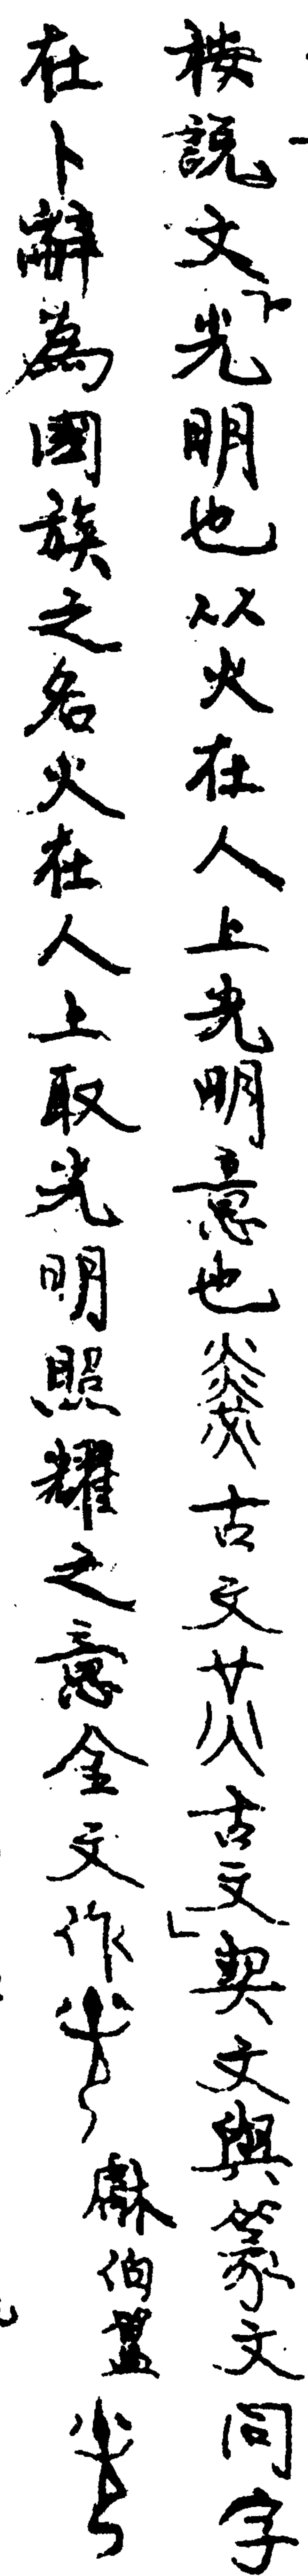 按說文「光明也从火在人上光明意也𤎫古文炗古文」契文與篆文同字
在卜辭為國族之名火在人上取光明照耀之意金文作 㝬伯簋